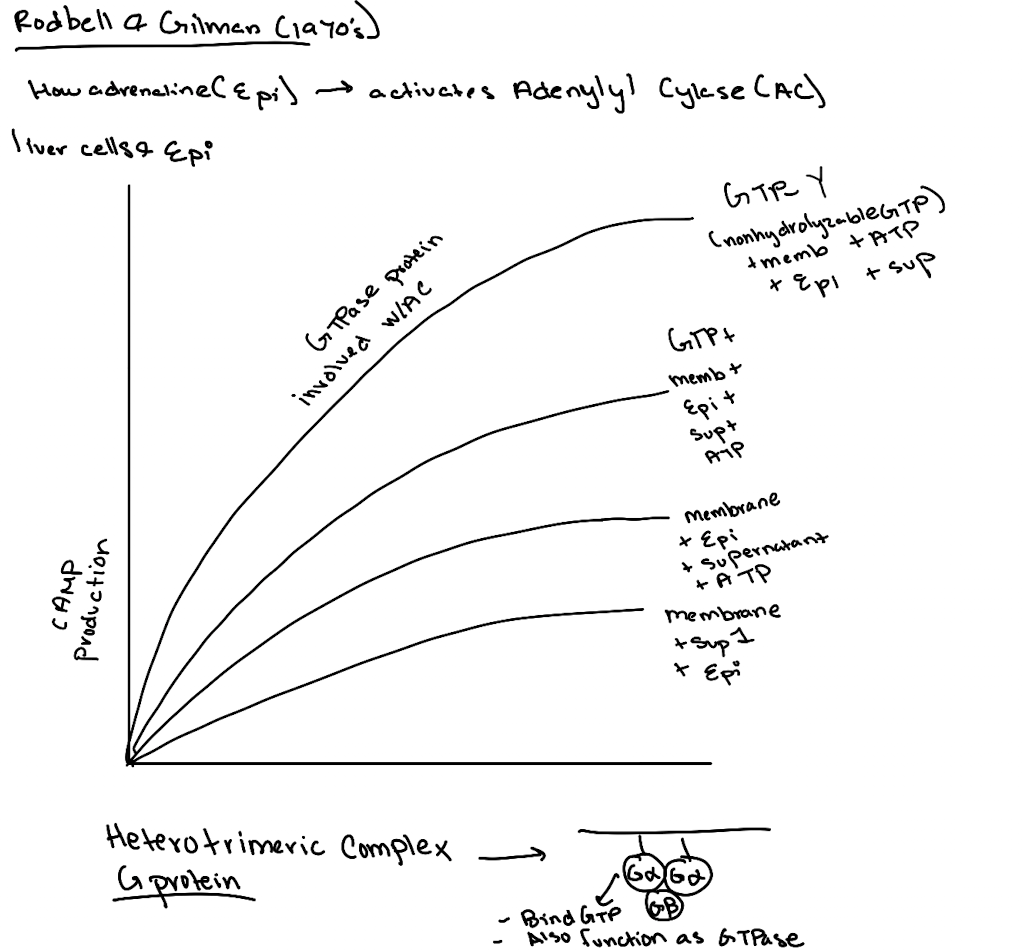 Rodbell & Gilman (1970's)
How adrenaline (Epi) → activates Adenylyl Cylase (AC)
liver cells & Epi
GTP-γ
(nonhydrolyzable GTP)
+ memb + ATP
+ Epi + sup
GTPase protein
involved w/AC
GTP +
memb +
Epi +
sup +
ATP
membrane
+ Epi
+ supernatant
+ ATP
membrane
+ sup 1
+ Epi
CAMP
production
Heterotrimeric Complex →
G protein
Gα Gα
Gβ
- Bind GTP
- Also function as GTPase